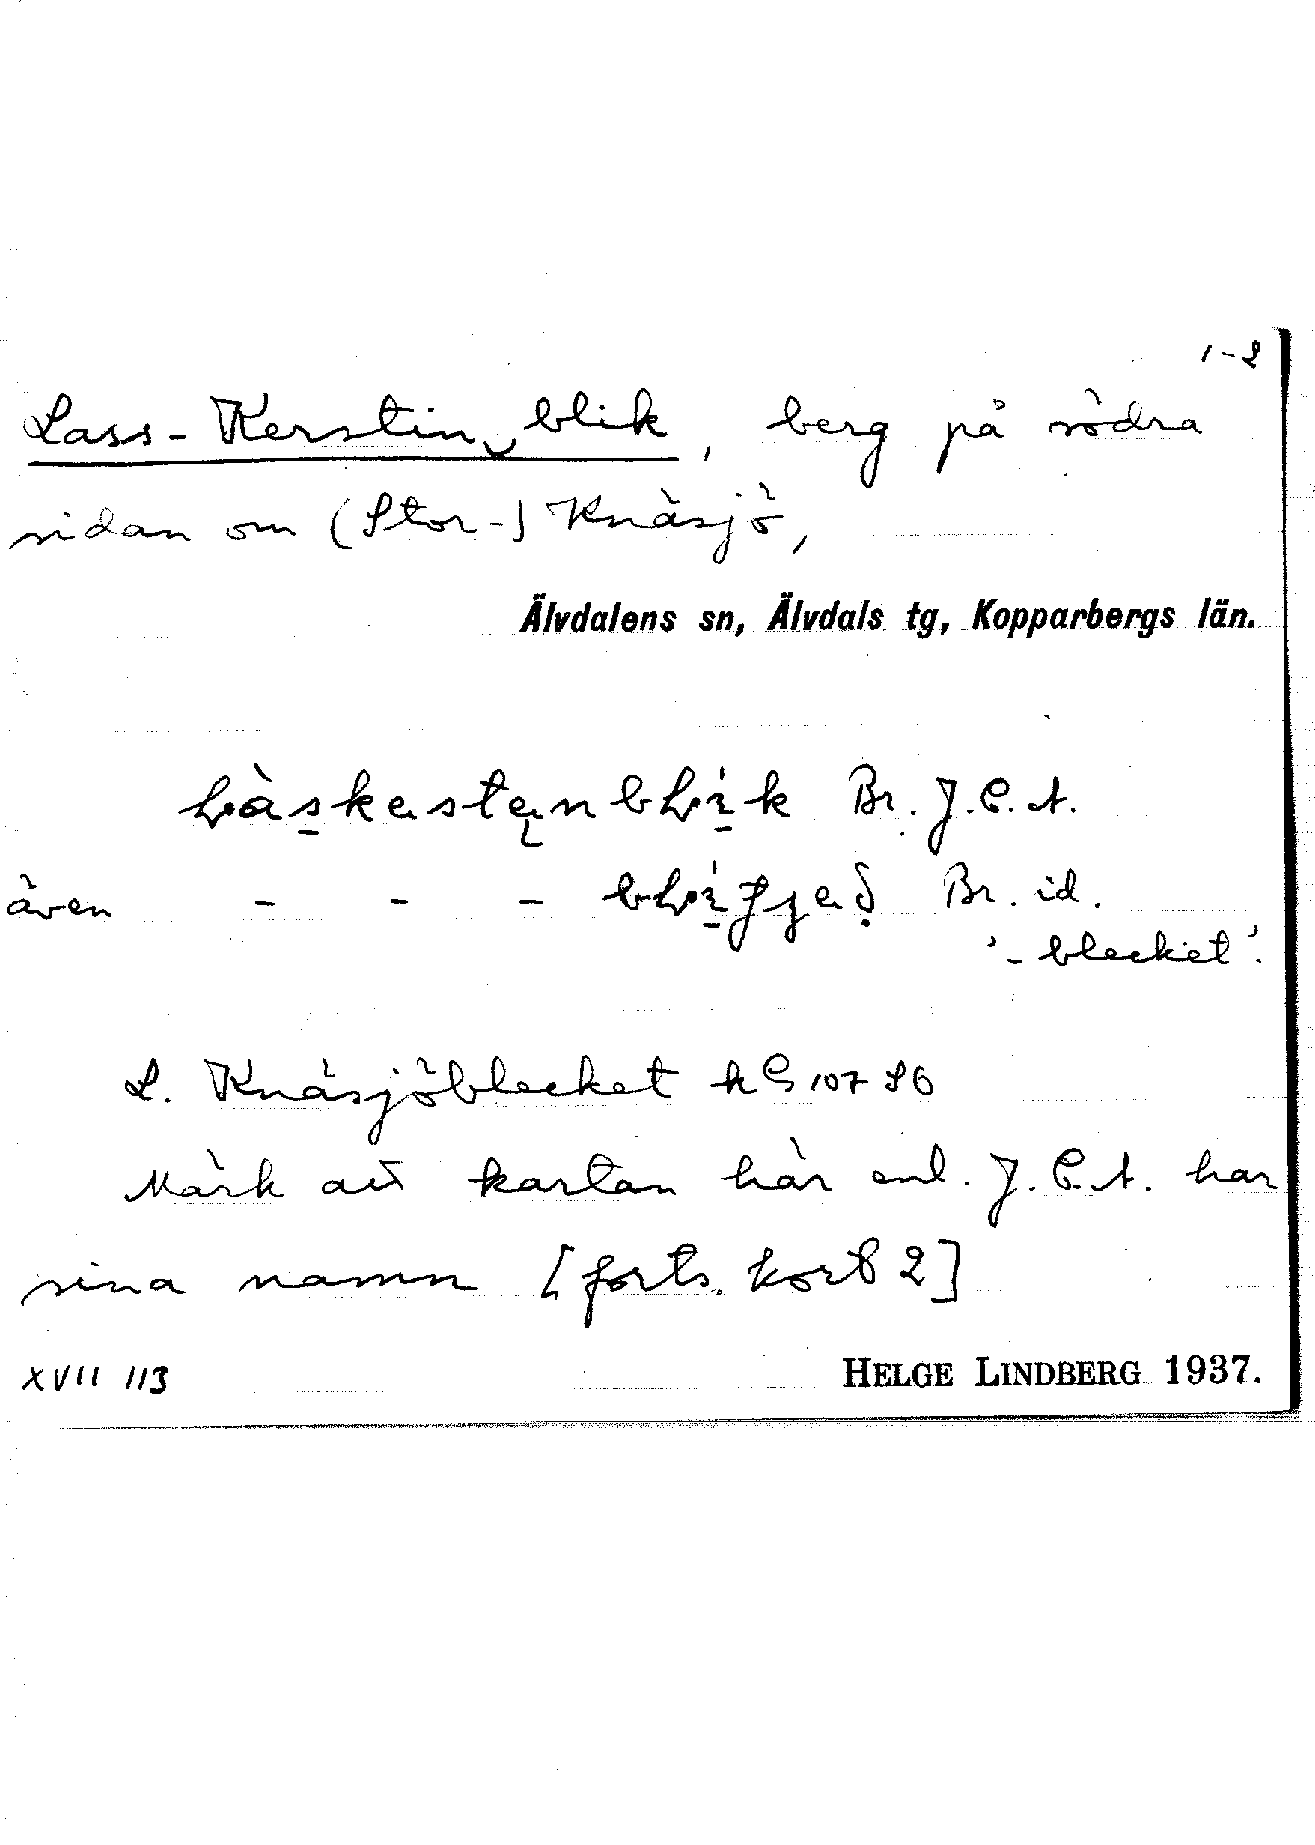 1-2
Lass-Kerstin‿blik, berg på södra
sidan om (Stor-) Knäsjö,
Älvdalens sn, Älvdals tg, Kopparbergs län.
Br. J.E.A.
även - - - Br. id.
'-blecket'.
L. Knäsjöblecket
Märk att kartan här enl. J.E.A. har
sina namn [forts. kort 2]
XVII 113
HELGE LINDBERG 1937.